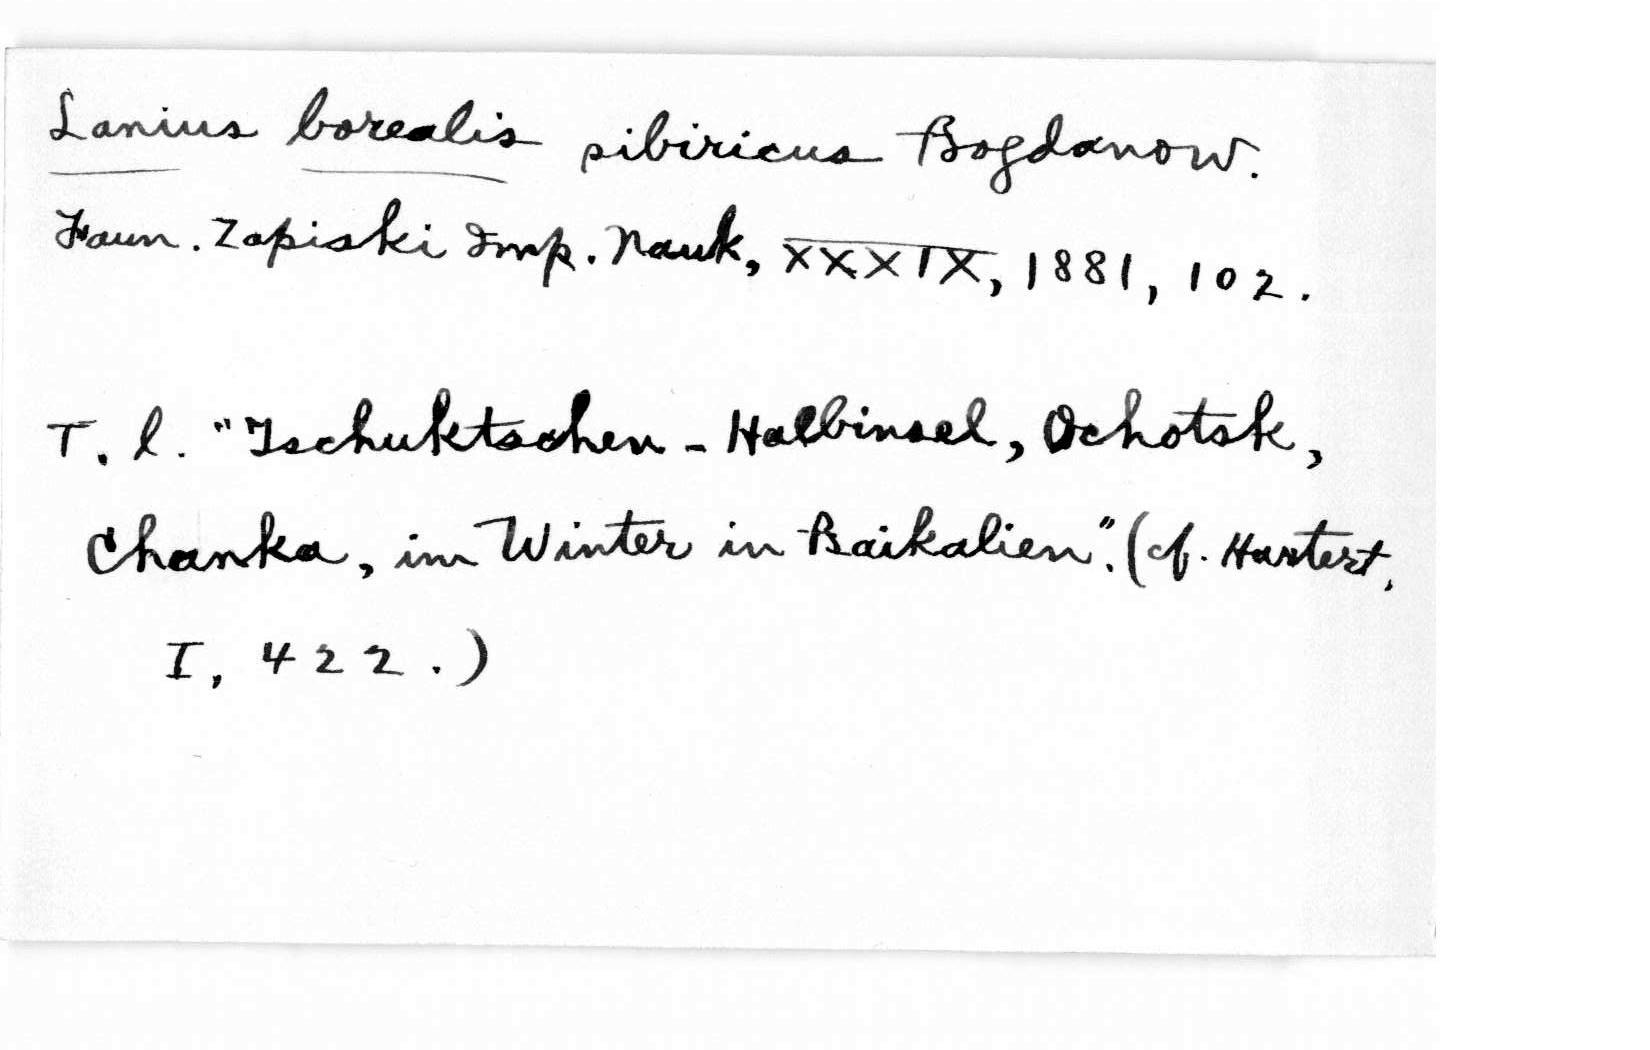 Lanius borealis sibiricus Bogdanow.
Faun. Zapiski Imp. Nauk, XXXIX, 1881, 102.
T. l. "Tschuktschen-Halbinsel, Ochotsk,
Chanka, im Winter in Baikalien". (cf. Hartert,
I, 422.)